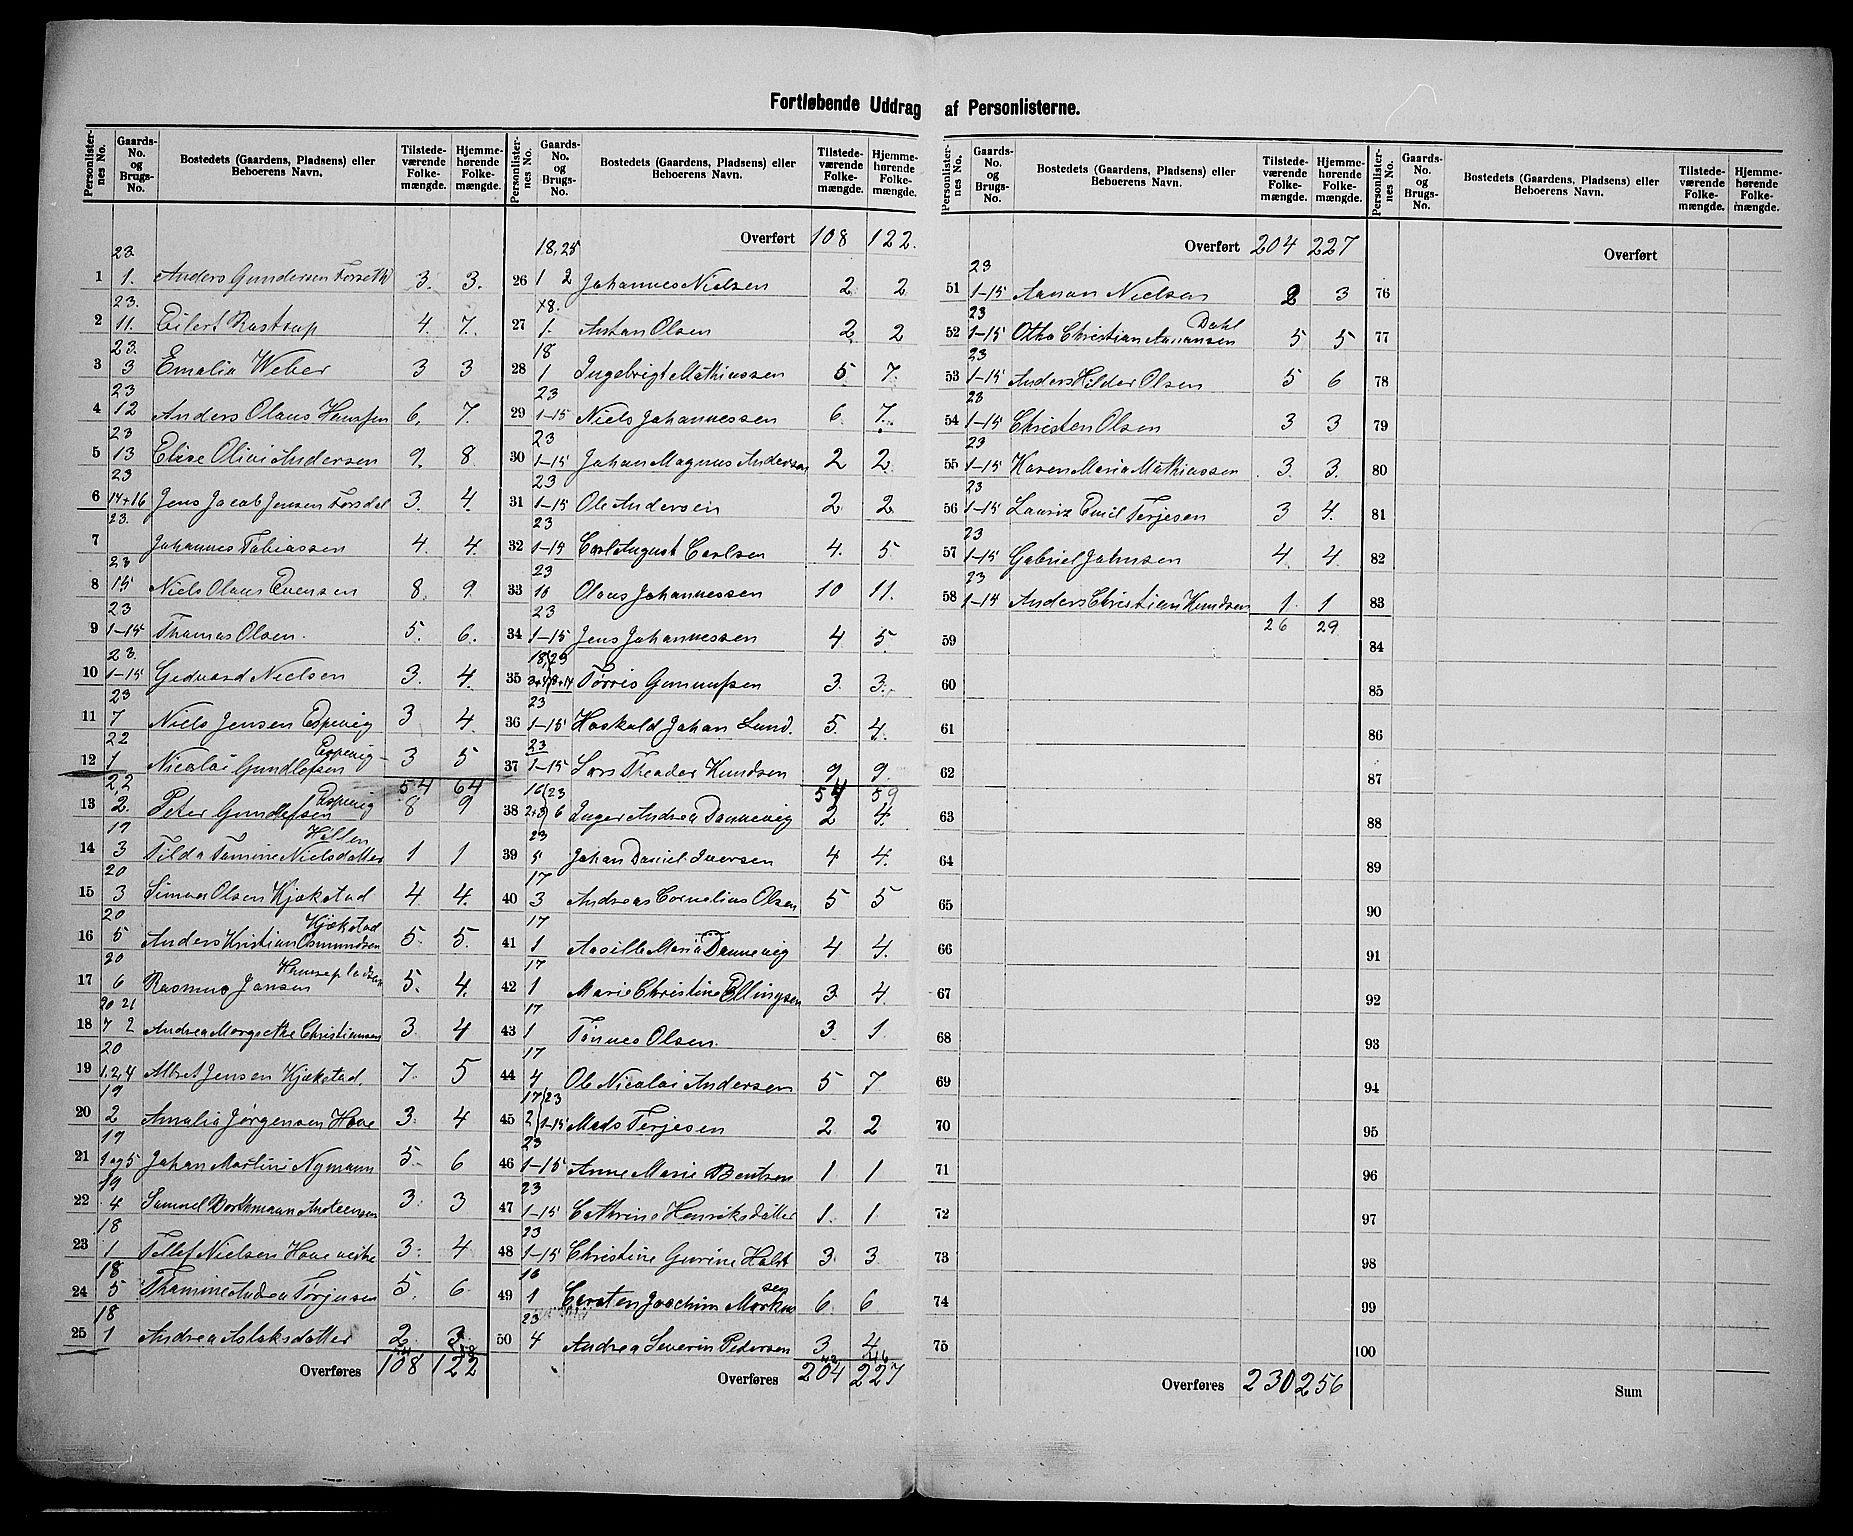 Fortløbende Uddrag af Personlisterne.
Personlister-nes No. Gaards-No. og Brugs-No. Bostedets (Gaardens, Pladsens) eller Beboerens Navn. Tilstede-værende Folke-mængde. Hjemme-hørende Folke-mængde.
23.
1 1. Anders Gundersen Forseth 3. 3.
23.
2 11. Eilert Rastrup 4. 7.
23.
3 3 Emalia Weber 3 3
23
4 12 Anders Olaus Hanssen 6. 7.
23
5 13 Elise Olivi Andersen 9. 8
23
6 14+16 Jens Jacob Jensen Forsdal 3. 4.
23.
7 Johannes Tobiassen 4. 4.
23
8 15 Niels Olaus Evensen 8. 9.
23
9 1-15 Thomas Olsen. 5. 6.
23.
10 1-15 Gedvard Nielsen 3. 4.
23
11 7 Niels Jensen Espevig 3 4.
22
12 1 Nicolai Gundlefsen Espevig 3 5
54 64
22
13 2. Peter Gundlefsen Espevig 8 9
19
14 3 Tilda Tomine Nielsdatter 1 1
20
15 3 Simon Olsen Kjækstad 4 4.
20
16 5 Anders Kristian Osmundsen Kjækstad 5. 5.
20
17 6 Rasmus Jansen 5. 4.
20 21
18 7 2 Andrea Margrethe Christiansen 3. 4
20
19 1,2,4 Albret Jensen Kjækstad. 7. 5
19
20 2 Amalia Jørgensen Hove 3. 4
19
21 1 og 5 Johan Martini Nymann 5. 6
19
22 4 Samuel Dorthmann 3. 3
18
23 1 Tellef Nielsen 3. 4
18
24 5 Thomine Andrea Torjusen 5. 6
18
25 1 Andrea Aslaksdatter 2. 3.
Overføres 108 122
Personlister-nes No. Gaards-No. og Brugs-No. Bostedets (Gaardens, Pladsens) eller Beboerens Navn. Tilstede-værende Folke-mængde. Hjemme-hørende Folke-mængde.
Overført 108 122.
18, 25
26 1 2 Johannes Nielsen 2 2
18.
27 1. Anton Olsen 2 2
18
28 1 Ingebrigt Mathiassen 5. 7.
23
29 1-15 Niels Johannessen 6. 7.
23
30 1-15 Johan Magnus Andersen 2 2.
23
31 1-15 Ole Andersen 2 2
23
32 1-15 Carl August Carlsen 4. 5.
23
33 10 Olaus Johannessen 10 11.
23
34 1-15 Jens Johannessen 4 5.
18/23
35 Tørris Gunnufsen 3. 3.
23
36 1-15 Hoskold Johan Lund. 5. 4.
23
37 1-15 Lars Theodor Knudsen 9 9.
54 59
16/23
38 2+3 6 Inger Andrea Dannevig 2 4.
23
39 5 Johan Daniel Iversen 4 4.
17
40 3 Andreas Cornelius Olsen 5 5
17
41 1 Aasille Maria Dannevig 4 4.
17
42 1 Marie Christine Ellingsen 3. 4.
17
43 1 Tønnes Olsen. 3. 1.
17
44 4. Ole Nicolai Andersen 5 7.
17/23
45 2 1-15 Mads Terjesen 2 2
23
46 1-15 Anne Marie Bentsen 1 1
23
47 1-15 Cathrine Henriksdatter 1. 1.
23
48 1-15 Christine Gurine Holst 3. 3.
16
49 1 Carsten Joachim Markussen 6. 6
23
50 4 Andrea Severin Pedersen 3. 4
42 46
Overføres 204 227
Personlister-nes No. Gaards-No. og Brugs-No. Bostedets (Gaardens, Pladsens) eller Beboerens Navn. Tilstede-værende Folke-mængde. Hjemme-hørende Folke-mængde.
Overført 204 227
23
51 1-15 Aanon Nielsen 2 3
23
52 1-15 Otto Christian Aanonsen Dahl 5 5
23
53 1-15 Anders Hildor Olsen 5 6
23
54 1-15 Christen Olsen 3 3
23
55 1-15 Karen Maria Mathiassen 3. 3.
23
56 1-15 Lauriz Emil Terjesen 3 4.
23
57 1-15 Gabriel Johnsen 4 4.
23
58 1-15 Anders Christian Knudsen 1. 1
26 29
59
60
61
62
63
64
65
66
67
68
69
70
71
72
73
74
75
Overføres 230 256
Personlister-nes No. Gaards-No. og Brugs-No. Bostedets (Gaardens, Pladsens) eller Beboerens Navn. Tilstede-værende Folke-mængde. Hjemme-hørende Folke-mængde.
Overført
76
77
78
79
80
81
82
83
84
85
86
87
88
89
90
91
92
93
94
95
96
97
98
99
100
Sum